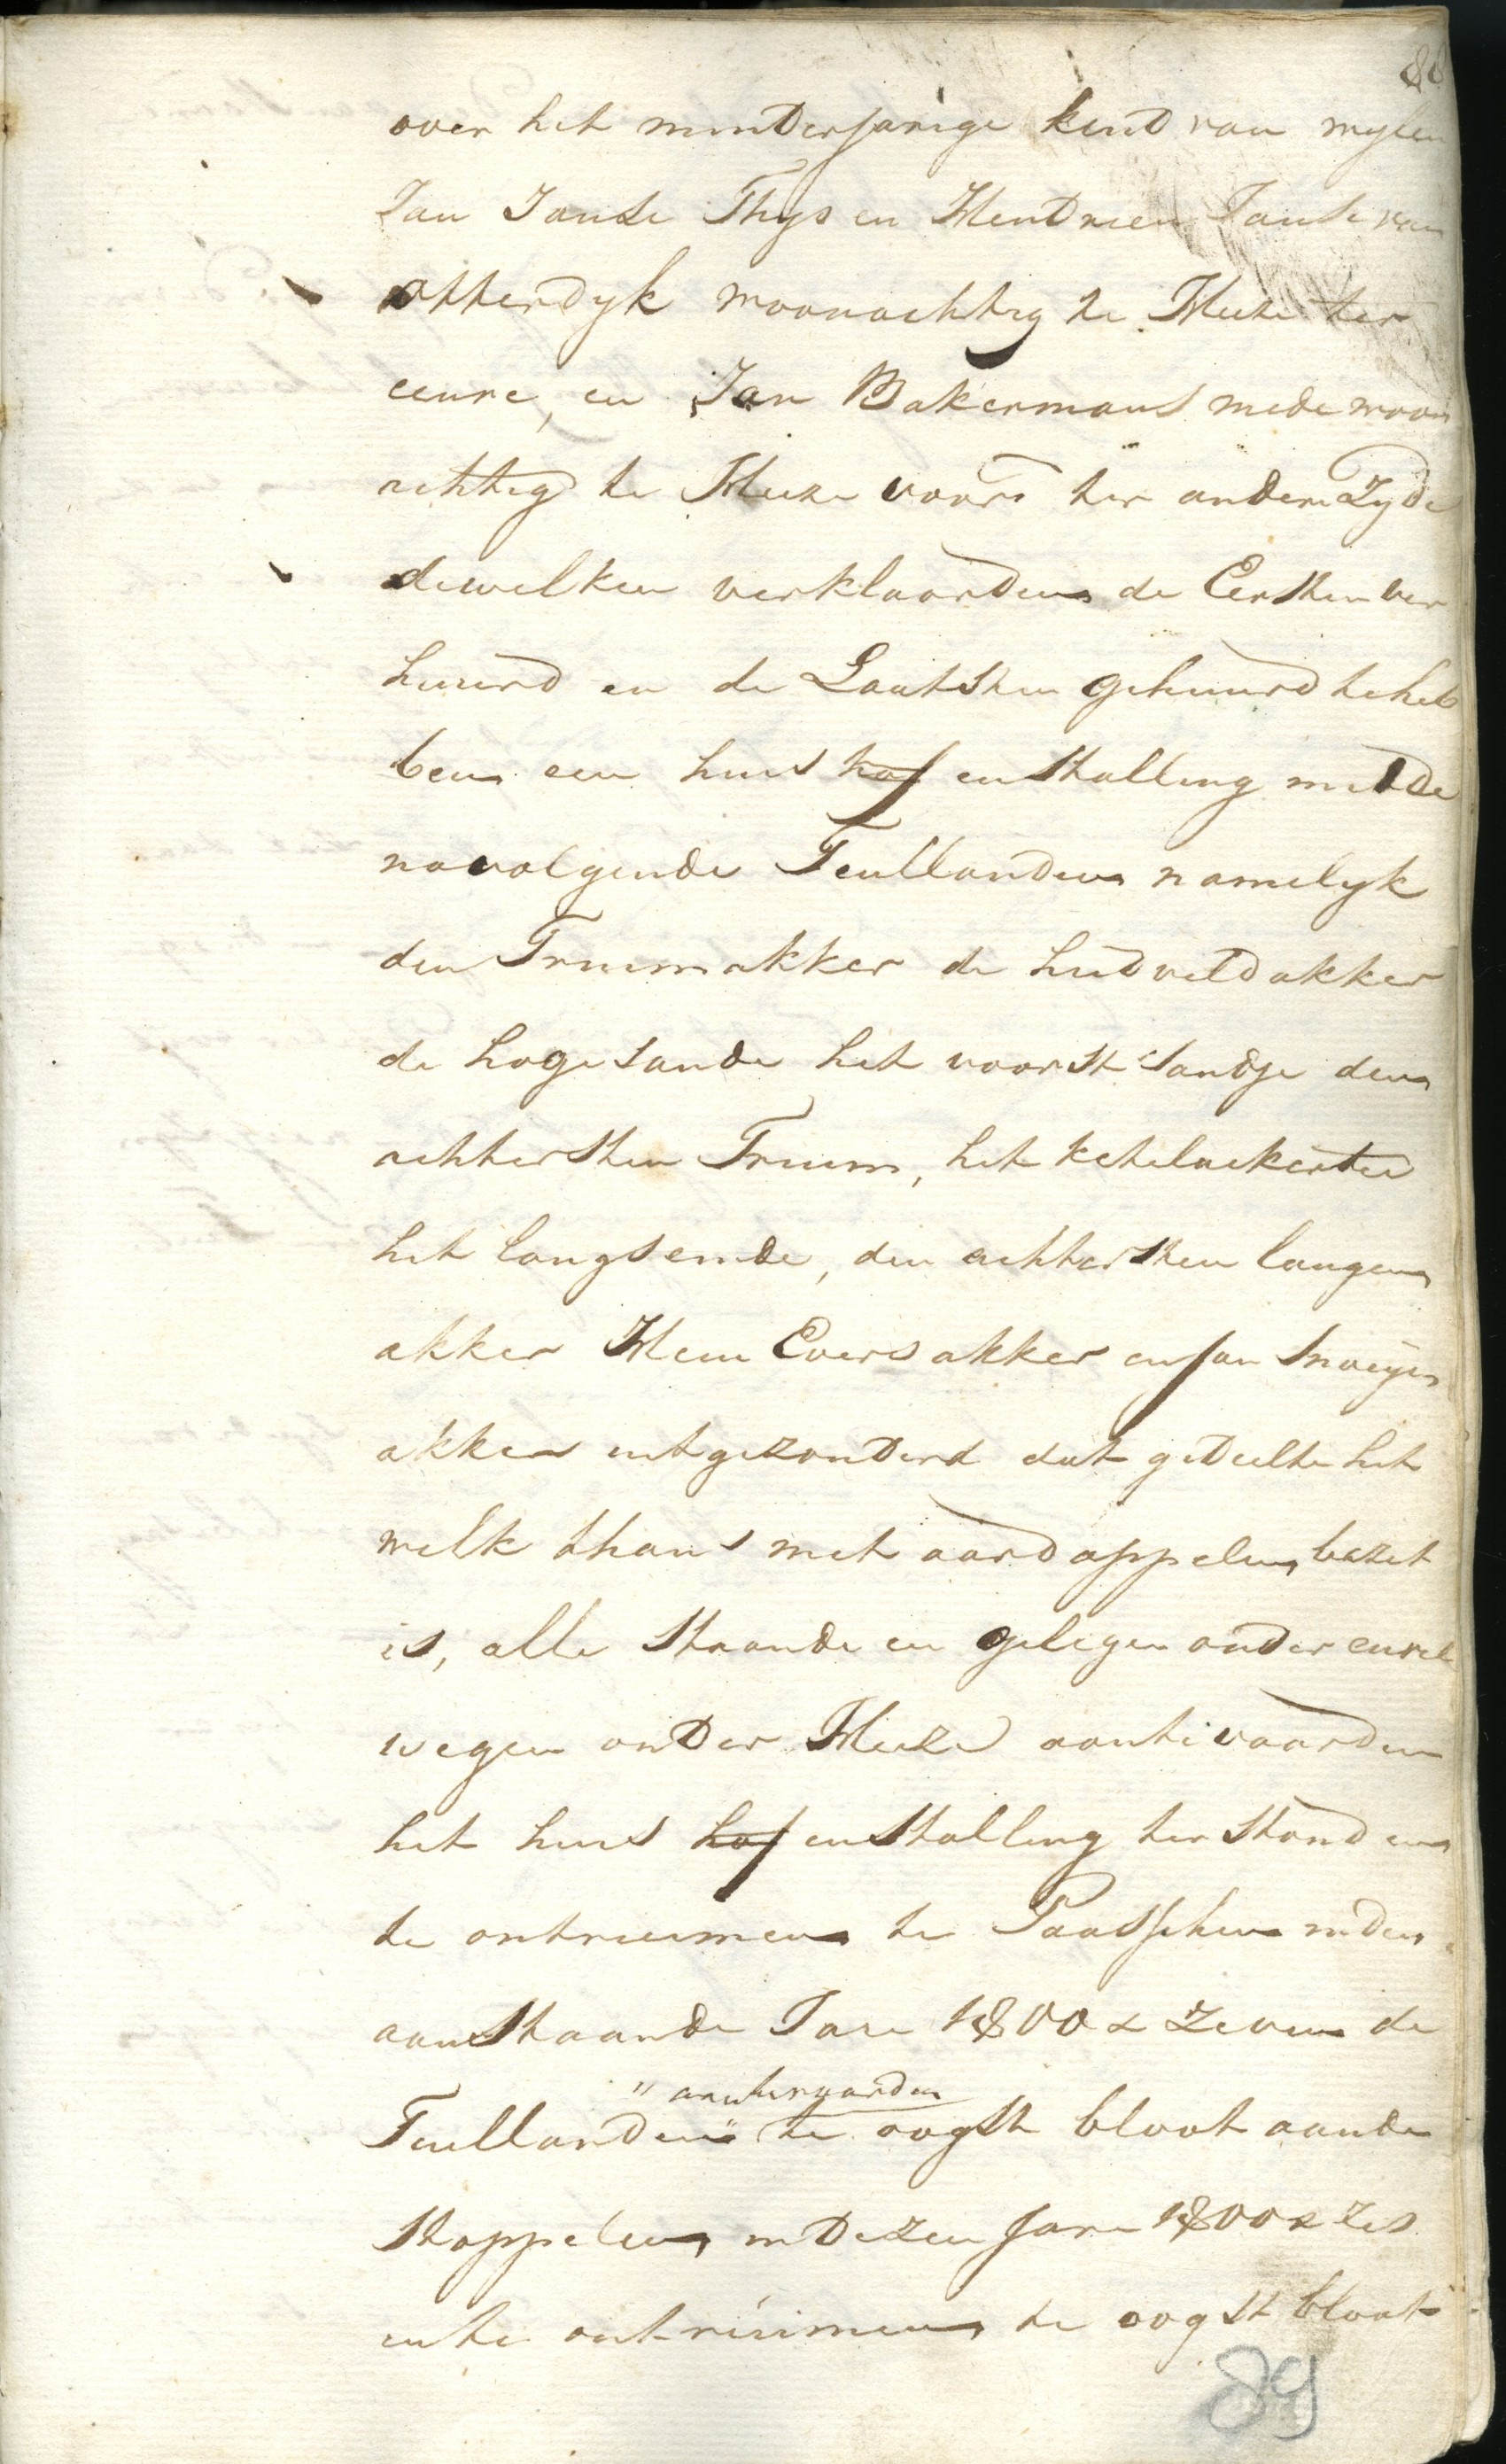 88
over het minderjarige kind van wylen
Jan Janse Thys en Hendrien Janse van
otterdyk woonachtig te Heeze ter
eenre, en Jan Bakermans mede woon
achtig te Heeze voors ter andere Zyde
dewelken verklaarden de Eersten ver
huurd en de Laatsten gehuurd te heb
ben een huis hof en stalling met de
navolgende Teullanden namelyk
den Truimakker de huidveldakker
de hoge sande het voorste sandje den
achtersten Truim, het ketelaekertie
het langseinde, den achtersten langen
akker Hein Evers akker en Jan Snoeyen
akker uitgezonderd dat gedeelte het
welk thans met aardappelen bezet
is, alle staande en gelegen onder
wegen onder Heeze aantevaarden
het huis hof en stalling terstond en
te ontruimen te Paasschen in den
aanstaande Jare 1800 & zeven de
" aantevaarden
Teullanden " te oogst bloot aan de
stoppelen in dezen Jare 1800 & zes
en te ontruimen te oogst bloot
89